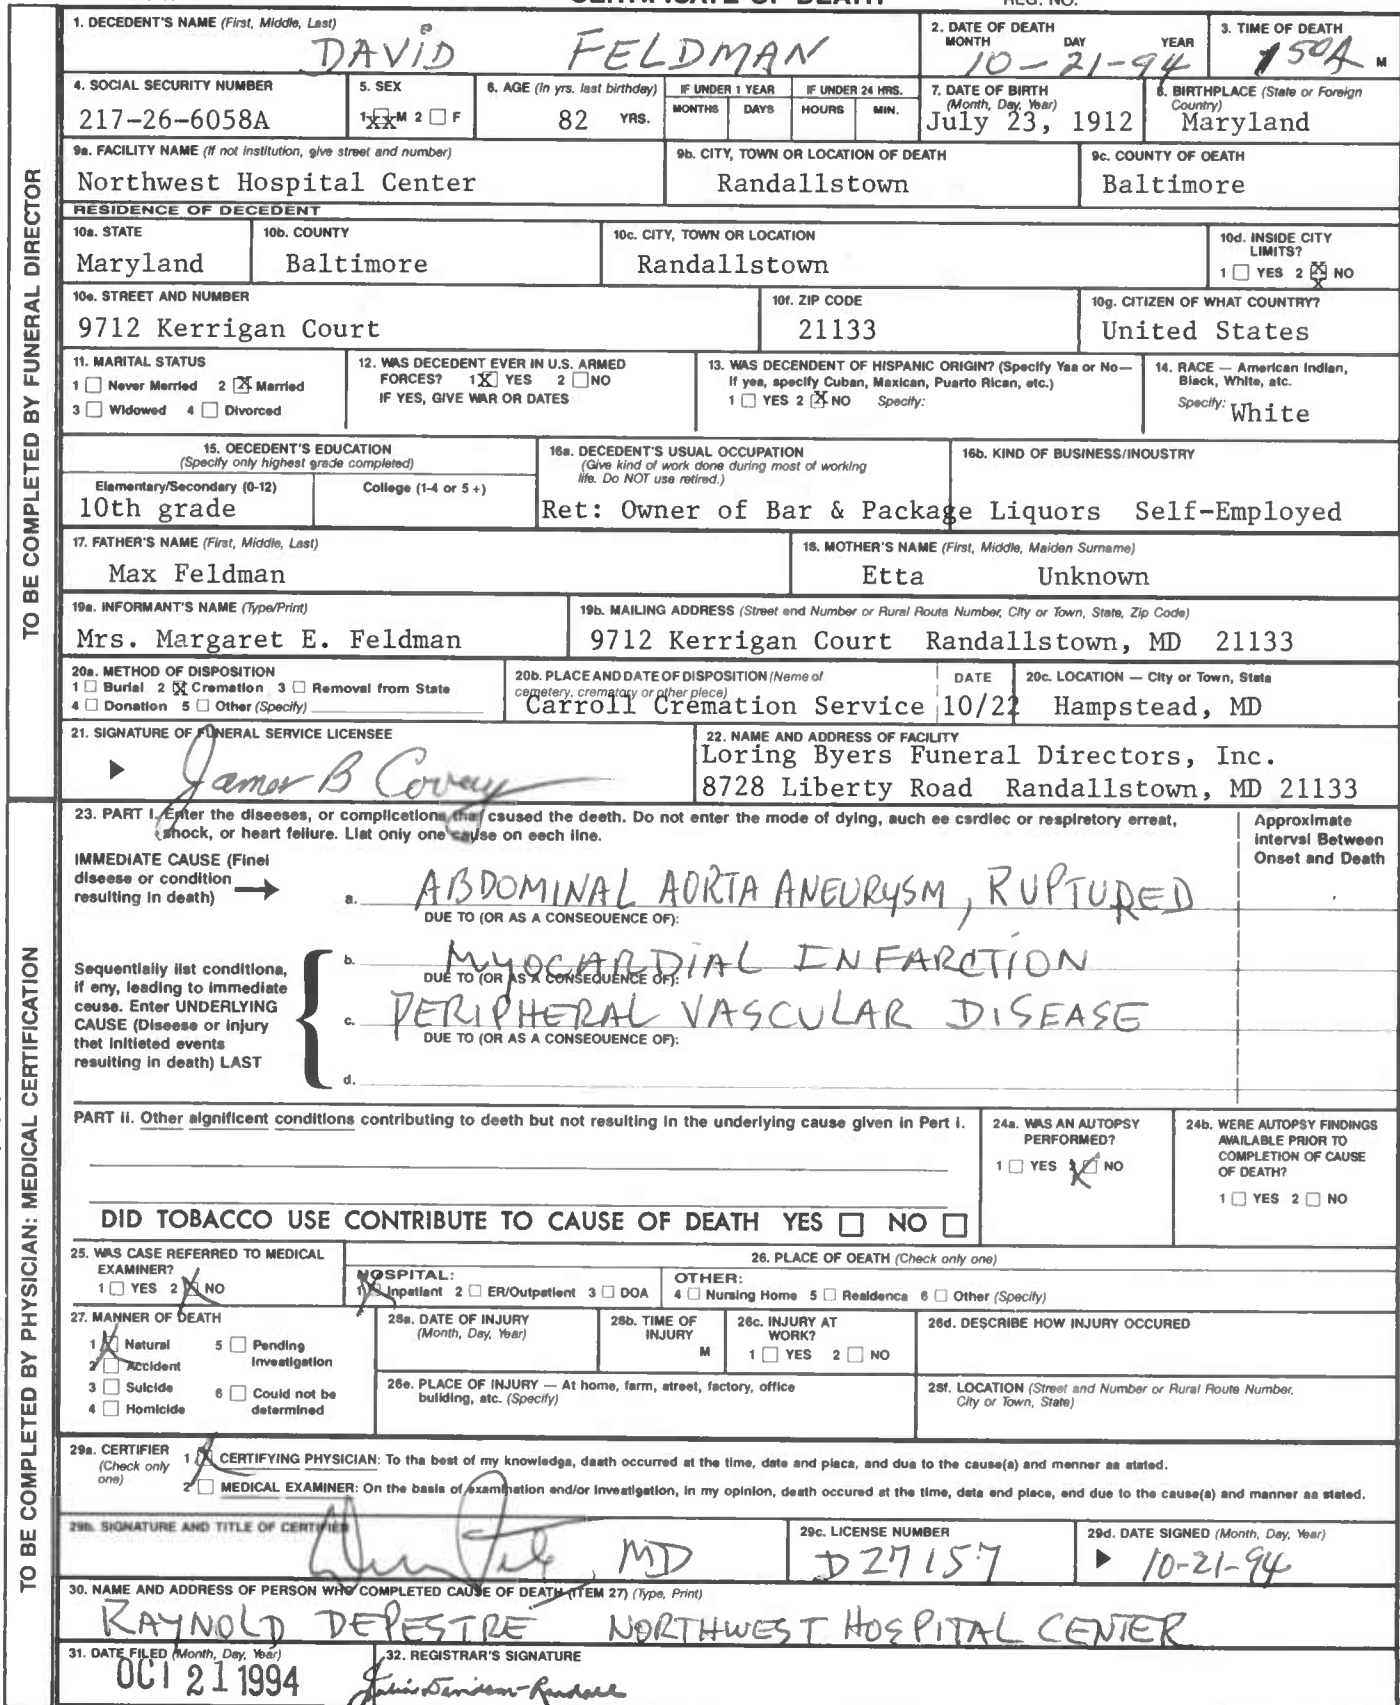 CERTIFICATE OF DEATH REG. NO.
1. DECEDENT'S NAME (First, Middle, Last)
DAVID FELDMAN
2. DATE OF DEATH
MONTH DAY YEAR
10-21-94
3. TIME OF DEATH
150A M
4. SOCIAL SECURITY NUMBER
217-26-6058A
5. SEX
1 XX M 2 ☐ F
6. AGE (In yrs. last birthday)
82 YRS.
IF UNDER 1 YEAR
MONTHS DAYS
IF UNDER 24 HRS.
HOURS MIN.
7. DATE OF BIRTH
(Month, Day, Year)
July 23, 1912
8. BIRTHPLACE (State or Foreign
Country)
Maryland
9a. FACILITY NAME (If not institution, give street and number)
Northwest Hospital Center
9b. CITY, TOWN OR LOCATION OF DEATH
Randallstown
9c. COUNTY OF DEATH
Baltimore
RESIDENCE OF DECEDENT
10a. STATE
Maryland
10b. COUNTY
Baltimore
10c. CITY, TOWN OR LOCATION
Randallstown
10d. INSIDE CITY
LIMITS?
1 ☐ YES 2 ☒ NO
10e. STREET AND NUMBER
9712 Kerrigan Court
10f. ZIP CODE
21133
10g. CITIZEN OF WHAT COUNTRY?
United States
11. MARITAL STATUS
1 ☐ Never Married 2 ☒ Married
3 ☐ Widowed 4 ☐ Divorced
12. WAS DECEDENT EVER IN U.S. ARMED
FORCES? 1 ☒ YES 2 ☐ NO
IF YES, GIVE WAR OR DATES
13. WAS DECENDENT OF HISPANIC ORIGIN? (Specify Yes or No—
If yes, specify Cuban, Maxican, Puarto Rican, etc.)
1 ☐ YES 2 ☒ NO Specify:
14. RACE — American Indian,
Black, White, atc.
Specify: White
15. OECEDENT'S EDUCATION
(Specify only highest grade completed)
Elamentary/Secondary (0-12) College (1-4 or 5+)
10th grade
16a. DECEDENT'S USUAL OCCUPATION
(Give kind of work done during most of working
life. Do NOT use retired.)
16b. KIND OF BUSINESS/INOUSTRY
Ret: Owner of Bar & Package Liquors Self-Employed
17. FATHER'S NAME (First, Middle, Last)
Max Feldman
18. MOTHER'S NAME (First, Middle, Maiden Surname)
Etta Unknown
19a. INFORMANT'S NAME (Type/Print)
Mrs. Margaret E. Feldman
19b. MAILING ADDRESS (Street end Number or Rural Routa Number, City or Town, State, Zip Code)
9712 Kerrigan Court Randallstown, MD 21133
20a. METHOD OF DISPOSITION
1 ☐ Burial 2 ☒ Cremation 3 ☐ Removal from State
4 ☐ Donation 5 ☐ Other (Specify)
20b. PLACE AND DATE OF DISPOSITION (Neme of
cemetery, crematory or other plece)
Carroll Cremation Service
DATE
10/22
20c. LOCATION — City or Town, Stata
Hampstead, MD
21. SIGNATURE OF FUNERAL SERVICE LICENSEE
James B
22. NAME AND ADDRESS OF FACILITY
Loring Byers Funeral Directors, Inc.
8728 Liberty Road Randallstown, MD 21133
TO BE COMPLETED BY FUNERAL DIRECTOR
23. PART I. Enter the diseeses, or complicetions that csused the death. Do not enter the mode of dying, auch ee csrdiec or respiretory erreat,
shock, or heart feilure. Liat only one cause on eech iine.
Approximate
intervsl Between
Onset and Death
IMMEDIATE CAUSE (Finel
diseese or condition
resulting in death)
a. ABDOMINAL AORTA ANEURYSM, RUPTURED
DUE TO (OR AS A CONSEOUENCE OF):
Sequentially iist conditiona,
if eny, leading to immediate
ceuse. Enter UNDERLYING
CAUSE (Diseese or injury
thet initieted events
resulting in death) LAST
b. MYOCARDIAL INFARCTION
DUE TO (OR AS A CONSEQUENCE OF):
c. PERIPHERAL VASCULAR DISEASE
DUE TO (OR AS A CONSEOUENCE OF):
d.
PART ii. Other aignificent conditions contributing to deeth but not resulting in the underlying cause given in Pert i.
24a. WAS AN AUTOPSY
PERFORMED?
1 ☐ YES 2 ☒ NO
24b. WERE AUTOPSY FINDINGS
AVAILABLE PRIOR TO
COMPLETION OF CAUSE
OF DEATH?
1 ☐ YES 2 ☐ NO
DID TOBACCO USE CONTRIBUTE TO CAUSE OF DEATH YES ☐ NO ☐
25. WAS CASE REFERRED TO MEDICAL
EXAMINER?
1 ☐ YES 2 ☒ NO
26. PLACE OF DEATH (Check only one)
HOSPITAL:
1 ☒ Inpatiant 2 ☐ ER/Outpatient 3 ☐ DOA
OTHER:
4 ☐ Nursing Home 5 ☐ Realdenca 6 ☐ Othar (Specify)
27. MANNER OF DEATH
1 ☒ Natural 5 ☐ Pending
Invaatigation
2 ☐ Accident
3 ☐ Suicide 6 ☐ Could not be
determined
4 ☐ Homicide
28a. DATE OF INJURY
(Month, Day, Year)
28b. TIME OF
INJURY
M
28c. INJURY AT
WORK?
1 ☐ YES 2 ☐ NO
28d. DESCRIBE HOW INJURY OCCURED
28e. PLACE OF INJURY — At home, farm, atreet, factory, office
building, atc. (Specify)
28f. LOCATION (Street and Number or Rural Route Number,
City or Town, State)
29a. CERTIFIER
(Check only
one)
1 ☒ CERTIFYING PHYSICIAN: To tha best of my knowledga, daath occurred at the tima, date and placa, and due to the cause(a) and menner aa atated.
2 ☐ MEDICAL EXAMINER: On the basis of examination end/or Inveatigation, in my opinion, death occured at the time, data end place, end due to the cause(a) and manner aa stated.
29b. SIGNATURE AND TITLE OF CERTIFIER
MD
29c. LICENSE NUMBER
D27157
29d. DATE SIGNED (Month, Day, Year)
10-21-94
30. NAME AND ADDRESS OF PERSON WHO COMPLETED CAUSE OF DEATH (ITEM 27) (Type, Print)
RAYNOLD DEPESTRE NORTHWEST HOSPITAL CENTER
31. DATE FILED (Month, Day, Year)
OCT 21 1994
32. REGISTRAR'S SIGNATURE
TO BE COMPLETED BY PHYSICIAN: MEDICAL CERTIFICATION